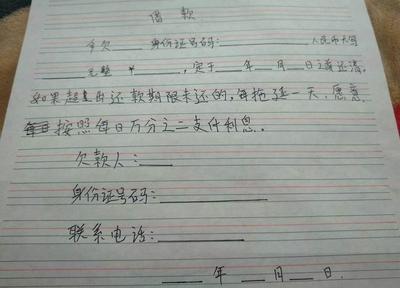 借款
今欠____身份证号码:__________人民币大写
____元整¥____,定于__年__月__日之前还清,
如果超出还款期限未还的,每拖延一天,愿意
按照每日万分之二支付利息。
欠款人:____
身份证号码:__________
联系电话:________
____年__月__日.